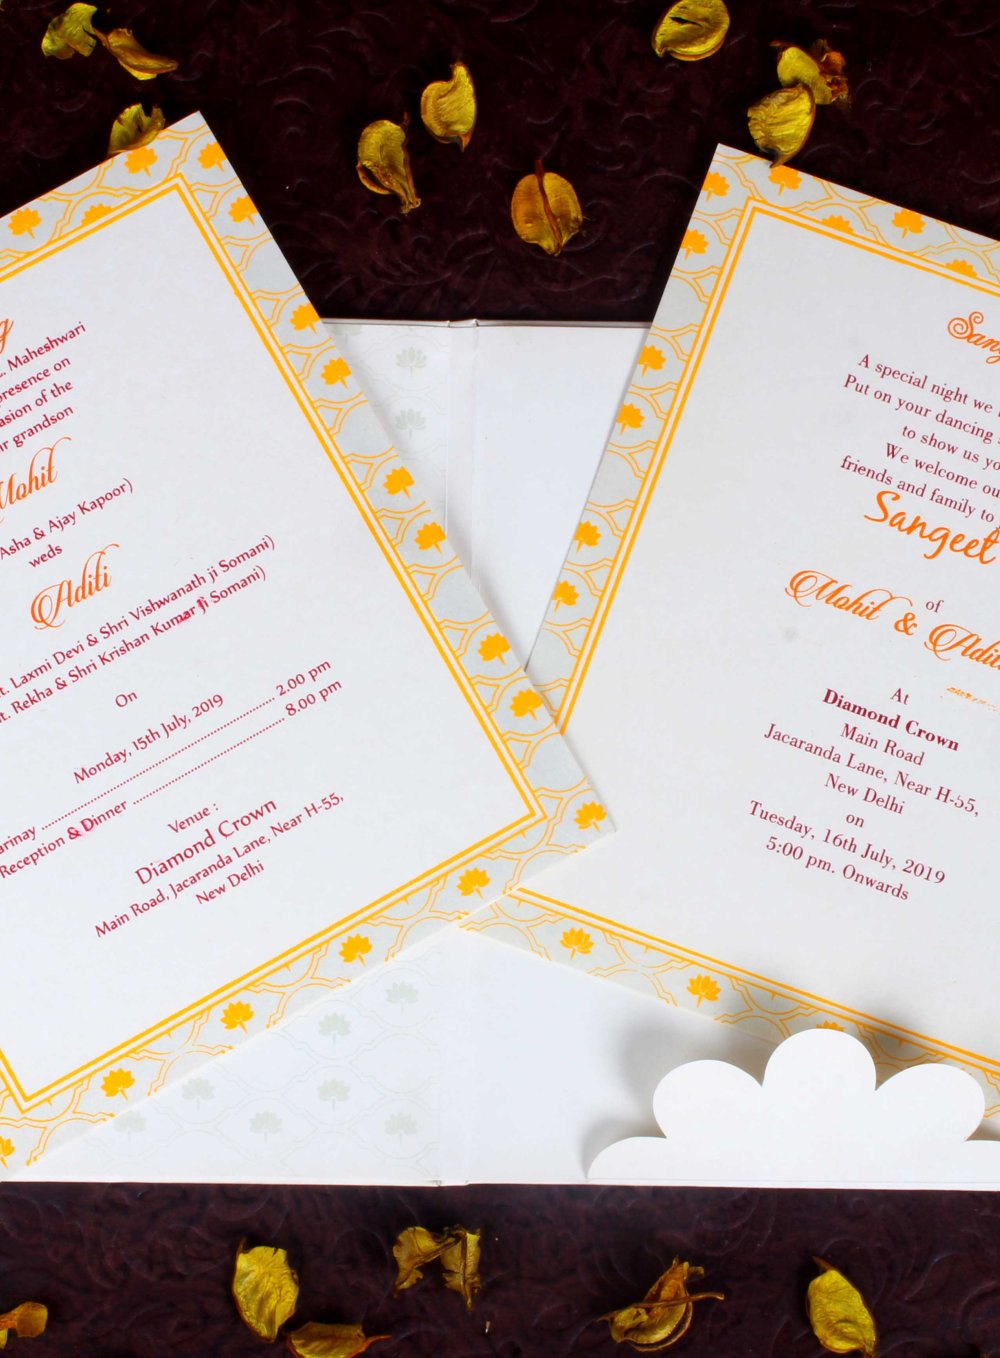 Maheshwari
presence on
of the
grandson
Mohit
Asha & Ajay Kapoor)
weds
Aditi
Laxmi Devi & Shri Vishwanath ji Somani)
Rekha & Shri Krishan Kumar Ji Somani)
On
Monday, 15th July, 2019
2.00 pm
Reception & Dinner 8.00 pm
Venue :
Diamond Crown
Main Road, Jacaranda Lane, Near H-55,
New Delhi
A special night we
Put on your dancing
to show us
We welcome
friends and family to
Sangeet
of
Mohit & Aditi
At
Diamond Crown
Main Road
Jacaranda Lane, Near H-55,
New Delhi
on
Tuesday, 16th July, 2019
5:00 pm. Onwards